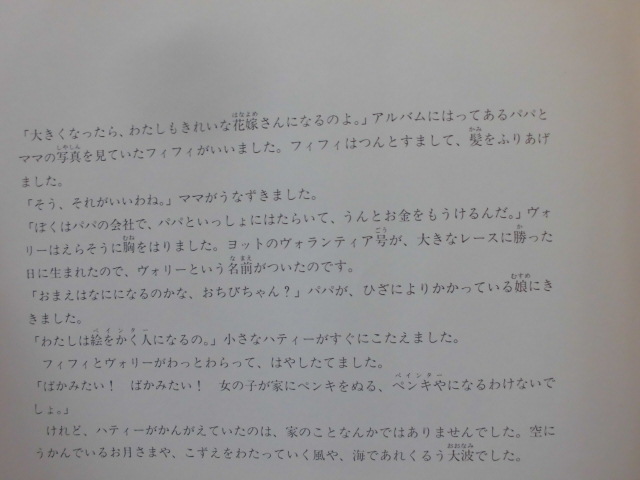 「大きくなったら、わたしもきれいな花嫁さんになるのよ。」アルバムにはってあるパパと
ママの写真を見ていたフィフィがいいました。フィフィはつんとすまして、髪をふりあげ
ました。
「そう、それがいいわね。」ママがうなずきました。
「ぼくはパパの会社で、パパといっしょにはたらいて、うんとお金をもうけるんだ。」ヴォ
リーはえらそうに胸をはりました。ヨットのヴォランティア号が、大きなレースに勝った
日に生まれたので、ヴォリーという名前がついたのです。
「おまえはなにになるのかな、おちびちゃん？」パパが、ひざによりかかっている娘にき
きました。
「わたしは絵をかく人になるの。」小さなハティーがすぐにこたえました。
フィフィとヴォリーがわっとわらって、はやしたてました。
「ばかみたい！　ばかみたい！　女の子が家にペンキをぬる、ペンキやになるわけないで
しょ。」
けれど、ハティーがかんがえていたのは、家のことなんかではありませんでした。空に
うかんでいるお月さまや、こずえをわたっていく風や、海であれくるう大波でした。